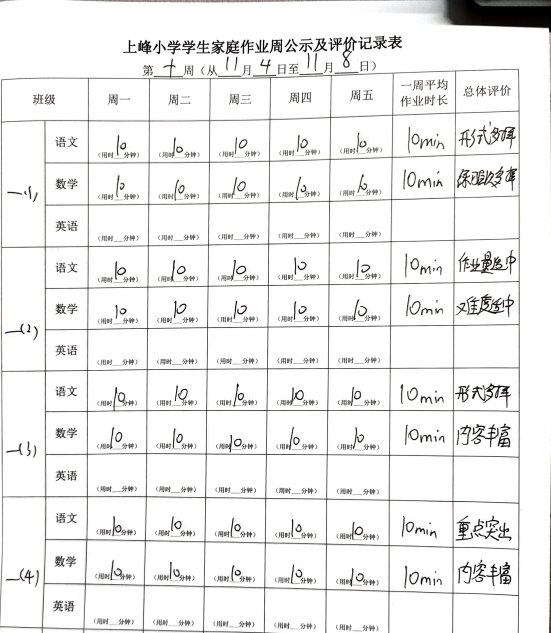 上峰小学学生家庭作业周公示及评价记录表
第十周(从11月4日至11月8日)
班级 周一 周二 周三 周四 周五 一周平均作业时长 总体评价
一(1)
语文 10(用时__分钟) 10(用时__分钟) 10(用时__分钟) 10(用时__分钟) 10(用时__分钟) 10min 形式多样
数学 10(用时__分钟) 10(用时__分钟) 10(用时__分钟) 10(用时__分钟) 10(用时__分钟) 10min 多样
英语 (用时__分钟) (用时__分钟) (用时__分钟) (用时__分钟) (用时__分钟)
一(2)
语文 10(用时__分钟) 10(用时__分钟) 10(用时__分钟) 10(用时__分钟) 10(用时__分钟) 10min 作业量适中
数学 10(用时__分钟) 10(用时__分钟) 10(用时__分钟) 10(用时__分钟) 10(用时__分钟) 10min 难度适中
英语 (用时__分钟) (用时__分钟) (用时__分钟) (用时__分钟) (用时__分钟)
一(3)
语文 10(用时__分钟) 10(用时__分钟) 10(用时__分钟) 10(用时__分钟) 10(用时__分钟) 10min 形式多样
数学 10(用时__分钟) 10(用时__分钟) 10(用时__分钟) 10(用时__分钟) 10(用时__分钟) 10min 内容丰富
英语 (用时__分钟) (用时__分钟) (用时__分钟) (用时__分钟) (用时__分钟)
一(4)
语文 10(用时__分钟) 10(用时__分钟) 10(用时__分钟) 10(用时__分钟) 10(用时__分钟) 10min 重点突出
数学 10(用时__分钟) 10(用时__分钟) 10(用时__分钟) 10(用时__分钟) 10(用时__分钟) 10min 内容丰富
英语 (用时__分钟) (用时__分钟) (用时__分钟) (用时__分钟) (用时__分钟)